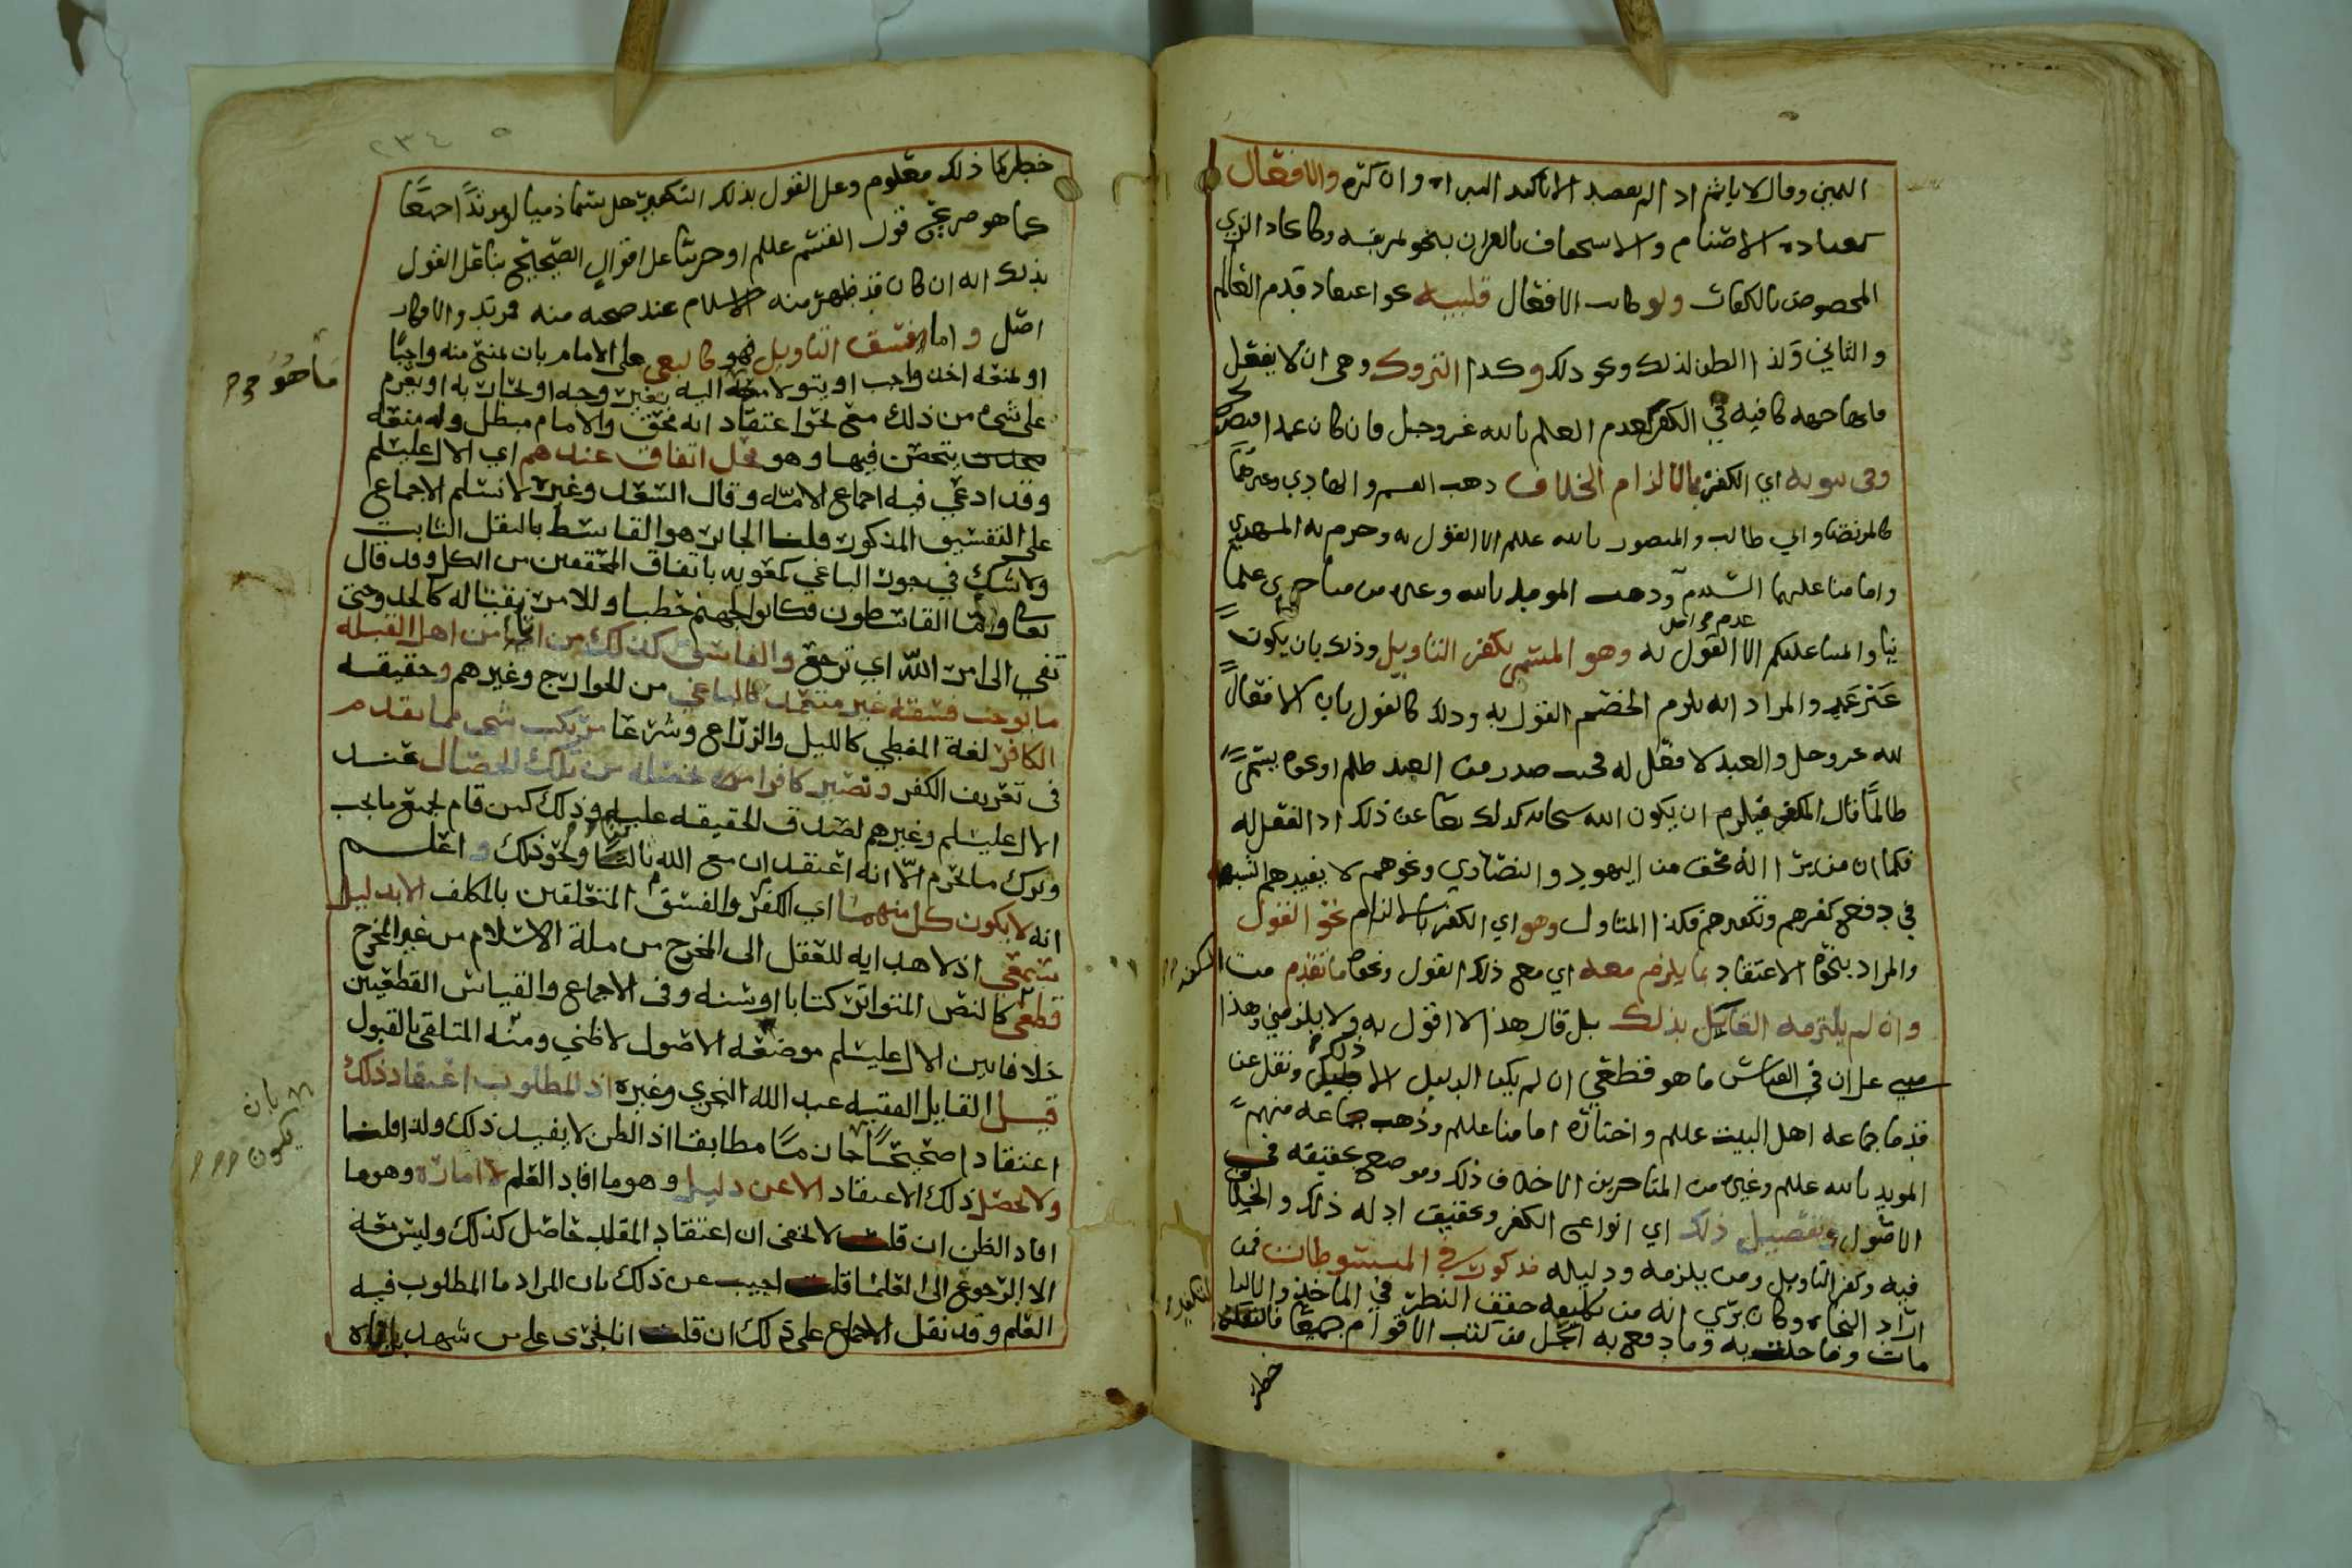 اليمين وقال لا ياثم اذ لم يقصد الا تاكيد البراه وان كثرم والافعال
كعباده الاصنام والاستخفاف بالقران بنحو تمزيقه وكاتخاذ الزي
المخصوص بالكفات ولو كانت الافعال قلبيه نحو اعتقاد قدم العالم
والثاني ولذا الظن لذلك ونحو ذلك وكذا التروك وهي ان لا يفعل
ما يجا جهه كافيه في الكفر كعدم العلم بالله عز وجل فان كان عمدا
وفي ثبوته اي الكفر بالالزام الخلاف ذهب القسم والهادي وغيرهما
كالمرتضى وابي طالب والمنصور بالله عللم الا القول به وجزم به المهدي
وامامنا عليهما السلام وذهب المويد بالله وغيره من متاخري علما
ئنا والمساعللكم الا القول به وهو المسمى بكفر التاويل وذلك بان يكون
عدم
عن عمد والمراد انه يلزم الخصم القول به وذلك كالقول بان الافعال
لله عز وجل والعبد لا فعل له فحيث صدر من العبد ظلم او نحوه يسمى
ظالما قال المكفر فيلزم ان يكون الله سبحانه كذلك تعا عن ذلك اذ الفعل له
فكما ان من يرا انه محق من اليهود والنصارى ونحوهم لا يفيدهم الشبهه
في دفع كفرهم وتكفيرهم فكذا المتاول وهو اي الكفر بالالزام نحو القول
والمراد بنحوه الاعتقاد بما يلزم معه اي مع ذلك القول ونحوه ما تقدم من
وان لم يلتزمه القايل بذلك بل قال هذا لا اقول به ولا يلزمني وهذا
مبني على ان في القياس ما هو قطعي ان لم يكن الدليل الا ذلك ونقل عن
قدما جماعه اهل البيت عللم واختاره امامنا عللم وذهب جماعه منهم
المويد بالله عللم وغيره من المتاخرين الا خلاف ذلك وموضع تحقيقه في
الاصول وتفصيل ذلك اي انواع الكفر وتحقيق ادله ذلك والخلاف
فيه وكفر التاويل ومن يلزمه ودليله مذكور في المبسوطات فمن
اراد النجاه وكان يرى انه من تكليفه حقق النظر في الماخذ والا
مات وما حلت به وما دفع به الكل من كتب الاقوام جميعا فالتكفير
خطر
خطر كما ذلك معلوم وعلى القول بذلك التكفير هل يسما ذميا او مرتدا اجمعا
كما هو صريح قول القسم عللم او حربيا على اقوال الصحيح بنا على القول
بذلك انه ان كان قد ظهر منه الاسلام عند صحه منه فمرتد والا فكان
اصل واما الفسق التاويل فهو كالبغي على الامام بان يمنع منه واجبا
ما هو
او لمنعه اخذ واجب او يتولا ما اليه بغير وجه او يحاربه او يعزم
على شي من ذلك مع نحو اعتقاد انه محق والامام مبطل وله منعه
يتحصن فيها وهو محل اتفاق عندهم اي الال عليسلم
وقد ادعي فيه اجماع الامه وقال السعد وغيره لا نسلم الاجماع
على التفسيق المذكور قلنا الجائر هو القاسط بالنقل الثابت
ولا شك في جور الباغي كمعويه باتفاق المحققين من الكل وقد قال
تعا واما القاسطون فكانوا لجهنم حطبا وللامر بقتاله كالحد وحتى
تفي الى امر الله اي ترجع والفاسق كذلك من اتا من اهل القبله
ما يوجب فسقه غير متعمد كالباغي من الخوارج وغيرهم وحقيقه
الكافر لغة المغطي كالليل والزراع وشرعا مرتكب شي مما تقدم
في تعريف الكفر وتصير كافرا من بخصله من تلك الخصال عند
الال عليسلم وغيرهم لصدق الحقيقه عليه وذلك كمن قام بجميع ما يجب
وترك ما يحرم الا انه اعتقد ان مع الله ثالثا ونحو ذلك واعلم
انه لا يكون كل منهما اي الكفر والفسق المتعلقين بالمكلف الا بدليل
سمعي اذ لا هدايه للعقل الى المخرج من ملة الاسلام من غير المخرج
قطعي كالنص المتواتر كتابا او سنه وفي الاجماع والقياس القطعيين
خلافا بين الال عليسلم موضعه الاصول لا ظني ومنه المتلقى بالقبول
قيل القايل الفقيه عبد الله النجري وغيره اذ المطلوب اعتقاد ذلك
بان
يكون
اعتقادا صحيحا جازما مطابقا اذ الظن لا يفيد ذلك ولذا قلنا
ولا يحصل ذلك الاعتقاد الا عن دليل وهو ما افاد العلم لا اماره وهو ما
افاد الظن ان قلت لا يخفى ان اعتقاد المقلد حاصل كذلك وليس معه
الا الرجوع الى العلما قلت اجيب عن ذلك بان المراد ما المطلوب فيه
العلم وقد نقل الاجماع على ذلك ان قلت انا نجري على من شهد بارتداده